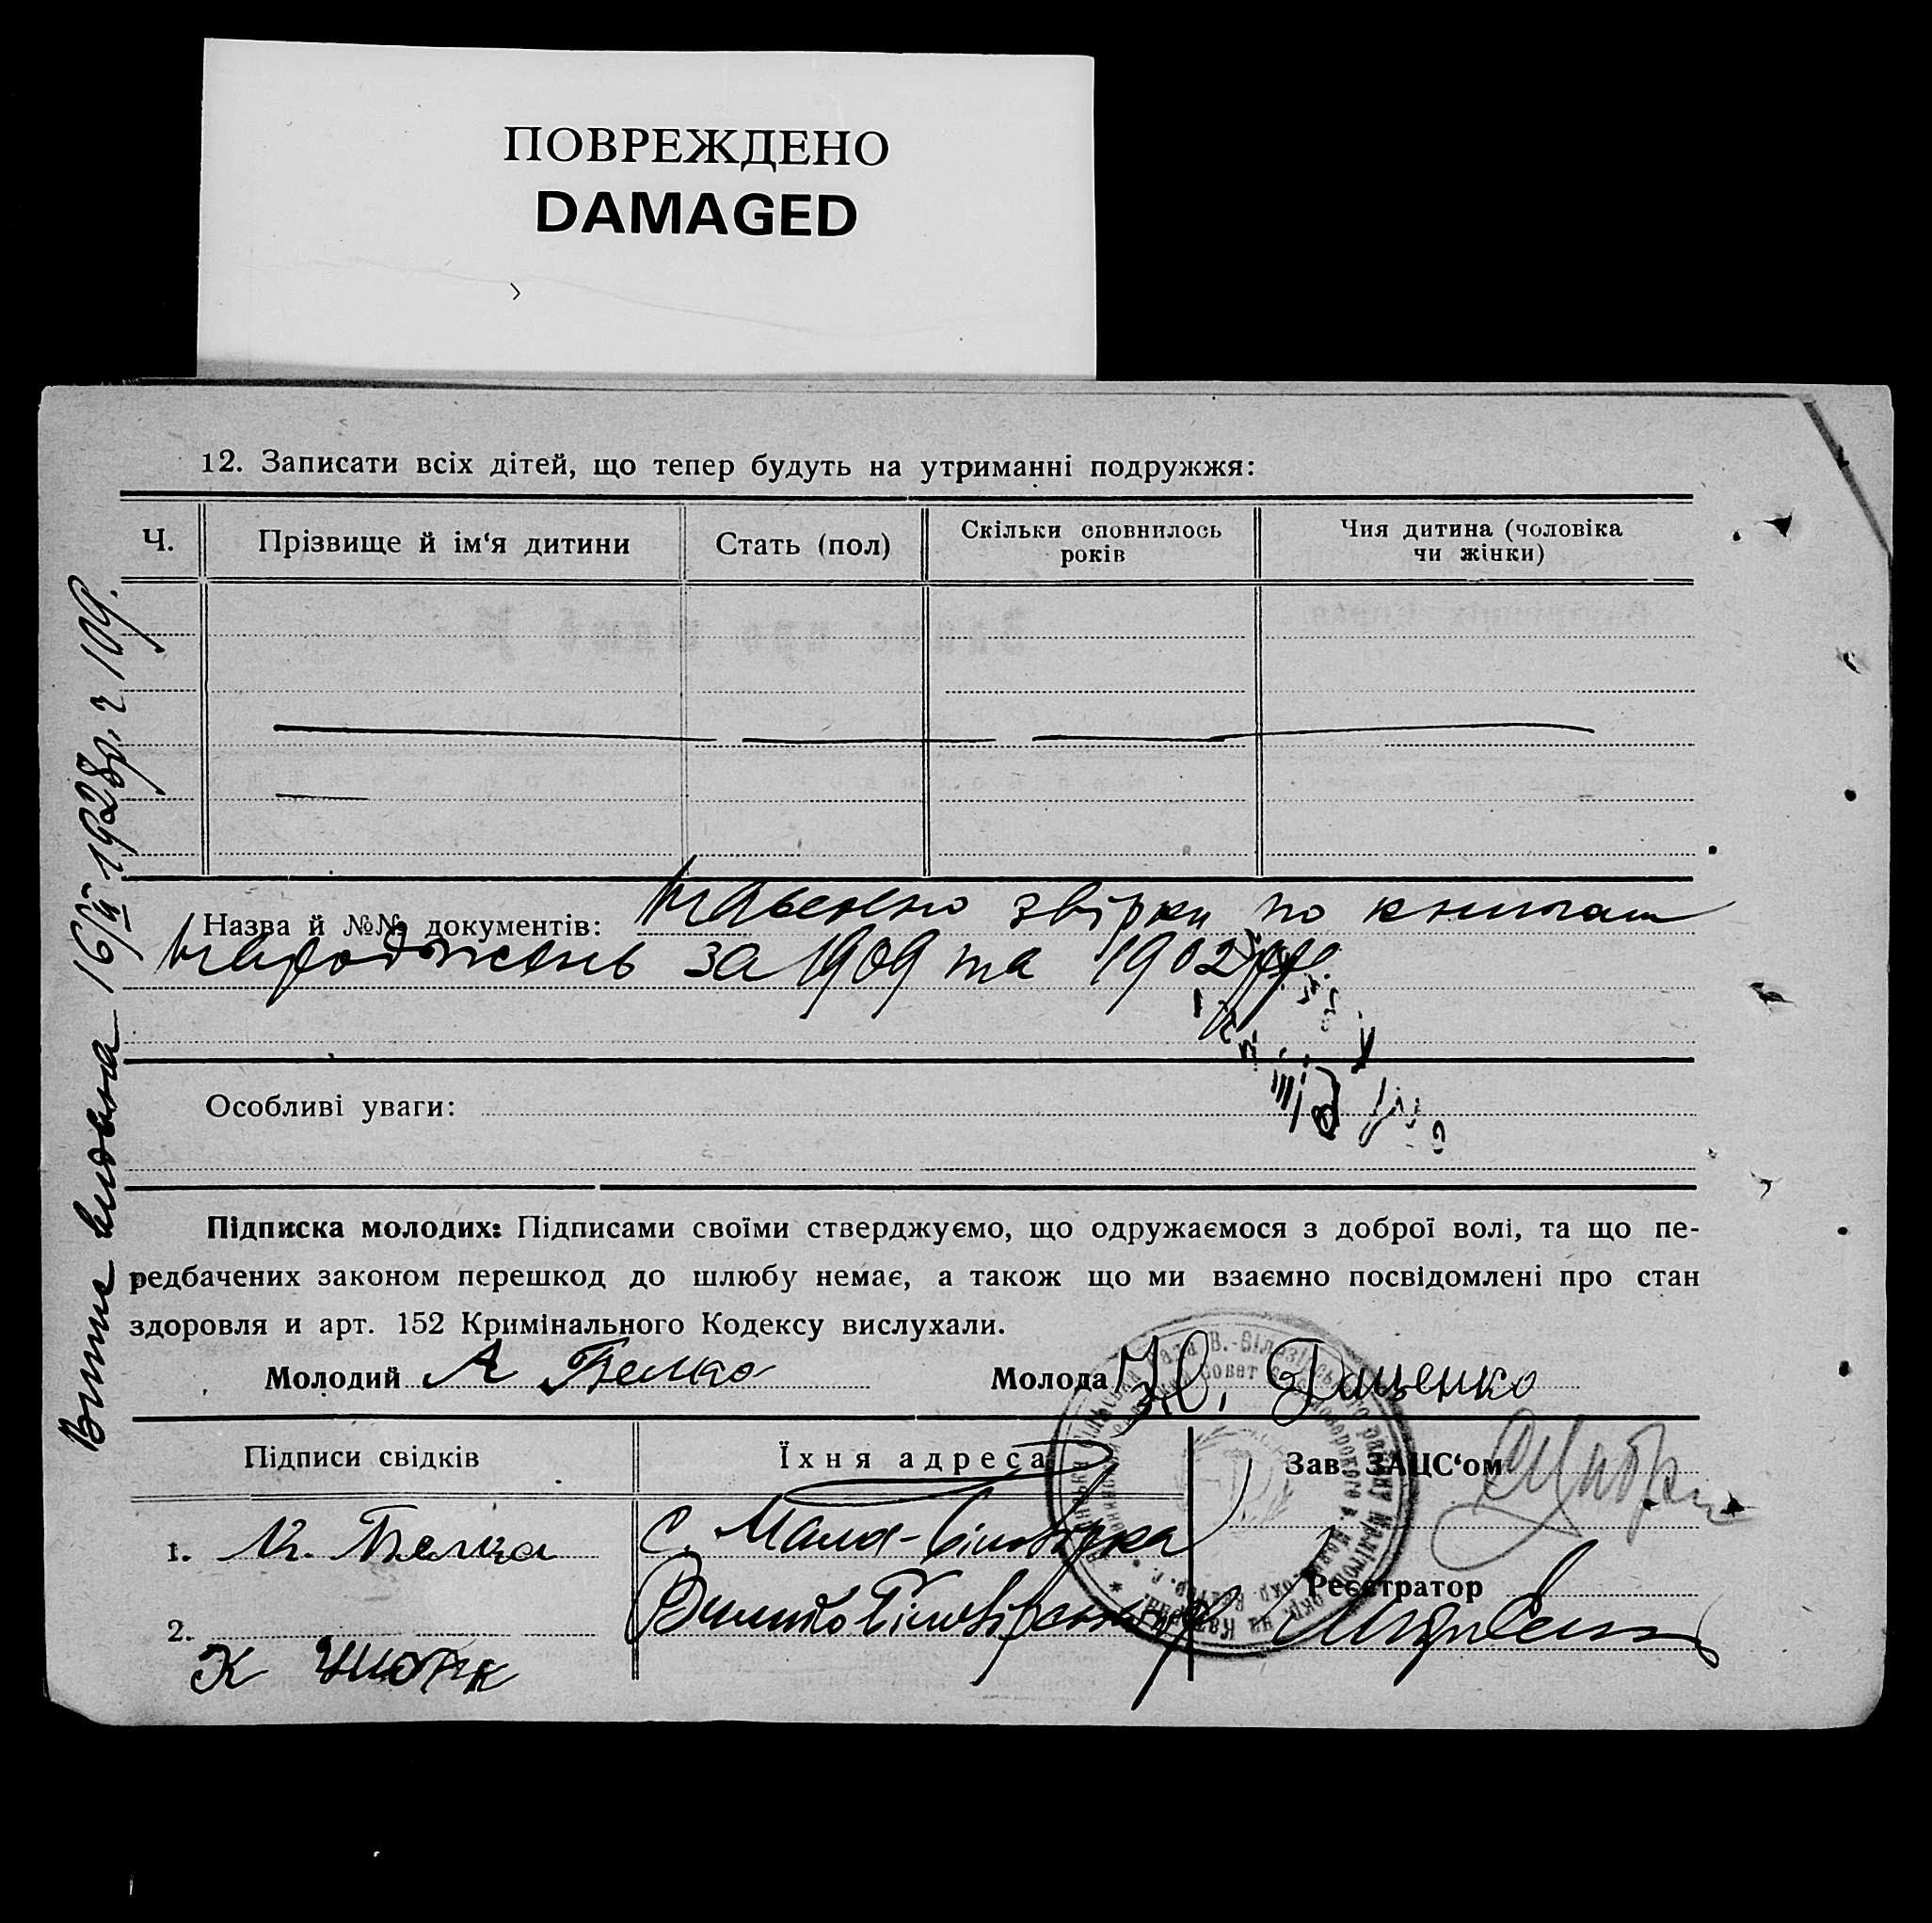 ПОВРЕЖДЕНО
DAMAGED
12. Записати всіх дітей, що тепер будуть на утриманні подружжя:
Ч.
Прізвище й ім‘я дитини
Стать (пол)
Скільки сповнилось
років
Чия дитина (чоловіка
чи жінки)
Назва й №№ документів: звірки по книгам
народжень за 1909 та 1902
Особливі уваги:
Підписка молодих: Підписами своїми стверджуємо, що одружаємося з доброї волі, та що пе-
редбачених законом перешкод до шлюбу немає, а також що ми взаємно посвідомлені про стан
здоровля и арт. 152 Кримінального Кодексу вислухали.
Молодий А Белко
Молода Ю. Даценко
Підписи свідків
Їхня адреса
Зав. ЗАЦС‘ом
1.
С. Мала-Білозірка
Реєстратор
2.
К
Витяг видана 16/ 1928р. ч 109.